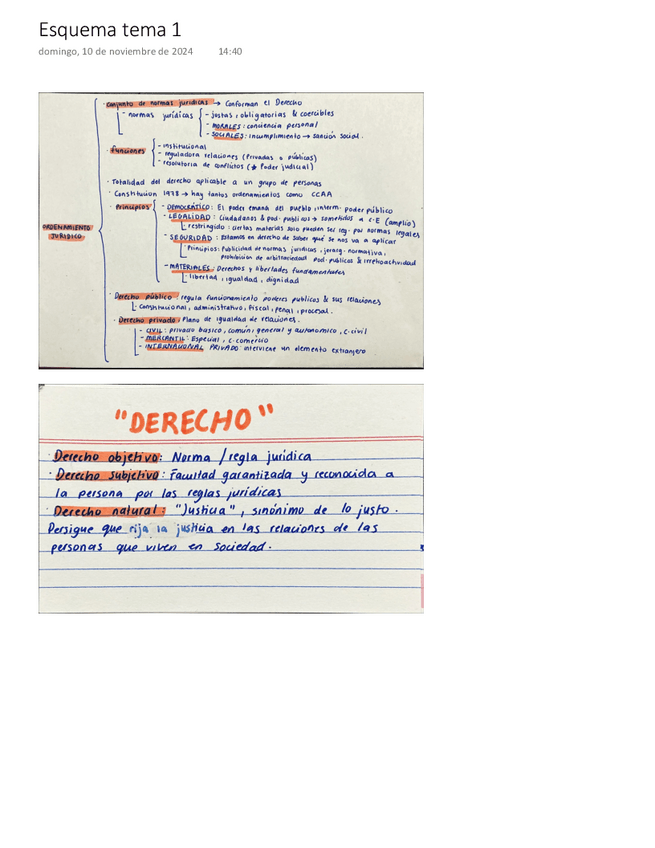 Esquema tema 1
domingo, 10 de noviembre de 2024 14:40
ORDENAMIENTO JURIDICO
· Conjunto de normas jurídicas → Conforman el Derecho
- normas jurídicas - justas, obligatorias & coercibles
- MORALES: conciencia personal
- SOCIALES: incumplimiento → sanción social.
· Funciones - institucional
- reguladora relaciones (Privadas o públicas)
- resolutoria de conflictos (→ Poder judicial)
· Totalidad del derecho aplicable a un grupo de personas
· Constitución 1978 → hay tantos ordenamientos como CCAA
· Principios - DEMOCRÁTICO: El poder emana del pueblo, interm. poder público
- LEGALIDAD: Ciudadanos & pod. públicos → sometidos a C.E (amplio)
restringido: ciertas materias solo pueden ser reg. por normas legales
- SEGURIDAD: Estamos en derecho de saber qué se nos va a aplicar
Principios: Publicidad de normas jurídicas, jerarq. normativa,
prohibición de arbitrariedad pod. públicos & irretroactividad
- MATERIALES: Derechos y libertades fundamentales
libertad, igualdad, dignidad
· Derecho público: regula funcionamiento poderes públicos & sus relaciones
Constitucional, administrativo, fiscal, penal, procesal.
· Derecho privado: Plano de igualdad de relaciones.
- CIVIL: privado básico, común, general y autonómico, c.civil
- MERCANTIL: Especial, c.comercio
- INTERNACIONAL PRIVADO: interviene un elemento extranjero
"DERECHO"
· Derecho objetivo: Norma / regla jurídica
· Derecho subjetivo: Facultad garantizada y reconocida a
la persona por las reglas jurídicas
· Derecho natural: "Justicia", sinónimo de lo justo.
Persigue que rija la justicia en las relaciones de las
personas que viven en sociedad.